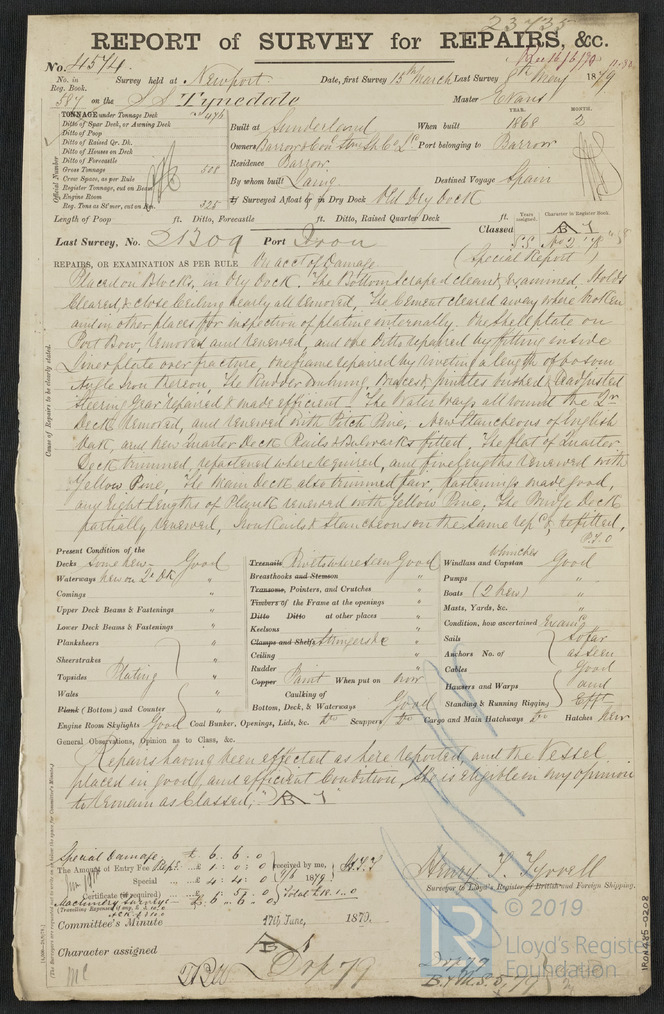 23735
REPORT of SURVEY for REPAIRS, &c.
No. 4574.
No. in Reg. Book. Survey held at Newport Date, first Survey 15th March Last Survey 8th May 1879
587 on the S S Tynedale Master Evans
TONNAGE under Tonnage Deck 476
Ditto of Spar Deck, or Awning Deck
Ditto of Poop
Ditto of Raised Qr. Dk.
Ditto of Houses on Deck
Ditto of Forecastle
Gross Tonnage 508
Crew Space, as per Rule
Register Tonnage, cut on Beam
Engine Room
Reg. Tons as St'mer, cut on Bm. 325
Official Number
YEAR. MONTH.
Built at Sunderland When built 1868 2
Owners Barrow & Con. Stm Sh. Co. Ld Port belonging to Barrow
Residence Barrow
By whom built Laing Destined Voyage Spain
If Surveyed Afloat or in Dry Dock Old Dry Dock
Length of Poop ft. Ditto, Forecastle ft. Ditto, Raised Quarter Deck ft.
Years assigned. Character in Register Book.
Classed A 1
Last Survey, No. 21309 Port Iron
S.S. No 2
REPAIRS, OR EXAMINATION AS PER RULE On acct of Damage (Special Report)
Placed on Blocks, in Dry Dock. The Bottom Scraped cleaned, examined, Holds
Cleared, & close Ceiling nearly all removed. The Cement cleared away where broken
and in other places for inspection of plating internally. One shell plate on
Port Bow, removed and renewed, and one Ditto repaired by fitting inside
Liner plate over fracture, one frame repaired by riveting a length of
Angle Iron thereon. The Rudder unhung, Braces & pintles bushed & readjusted
Steering Gear repaired & made efficient. The Water Ways all round the Qr
Deck removed, and renewed with Pitch Pine, New Stancheons of English
Oak, and New Quarter Deck Rails & Bulwarks fitted. The flat of Quarter
Deck trimmed, refastened where required, and five lengths renewed with
Yellow Pine. The Main deck also trimmed fair, fastenings made good,
and Eight lengths of Plank renewed with Yellow Pine. The Bridge Deck
partially renewed, Iron Rails & Stancheons on the same repd & refitted,
P.T.O
Cause of Repairs to be clearly stated.
Present Condition of the
Decks Some new - Good
Waterways New on Qr DK "
Comings "
Upper Deck Beams & Fastenings "
Lower Deck Beams & Fastenings "
Planksheers
Sheerstrakes
Topsides Plating "
Wales
Plank (Bottom) and Counter "
Treenails Rivets where seen Good
Breasthooks and Stemson "
Transoms, Pointers, and Crutches "
Timbers of the Frame at the openings "
Ditto Ditto at other places "
Keelsons "
Clamps and Shelfs Stringers &c "
Ceiling "
Rudder "
Copper Paint When put on now
Caulking of
Bottom, Deck, & Waterways Good
Winches
Windlass and Capstan Good
Pumps "
Boats (2 New) "
Masts, Yards, &c. "
Condition, how ascertained Examg
Sails so far
Anchors No. of as seen
Cables Good
Hawsers and Warps and
Standing & Running Rigging Efft
Engine Room Skylights Good Coal Bunker, Openings, Lids, &c. do Scuppers do Cargo and Main Hatchways do Hatches New
General Observations, Opinion as to Class, &c.
Repairs having been effected as here reported, and the Vessel
placed in good, and efficient Condition, She is eligible in my opinion
to remain as Classed, A 1
Special Damage £ 6. 6. 0
The Amount of Entry Fee £ 1. 0. 0 received by me,
Special £ 4. 4. 0 1879
Certificate (if required) £ 5. 0 Total
Machinery Survey
(Travelling Expenses if any, £ )
Henry T. Tyrrell
Surveyor to Lloyd's Register of British and Foreign Shipping.
Committee's Minute 17th June, 1879.
Character assigned A 1
Dop 79
Dop 79
B.&M.S. 5,79
© 2019
Lloyd's Register
Foundation
IRON485-0208